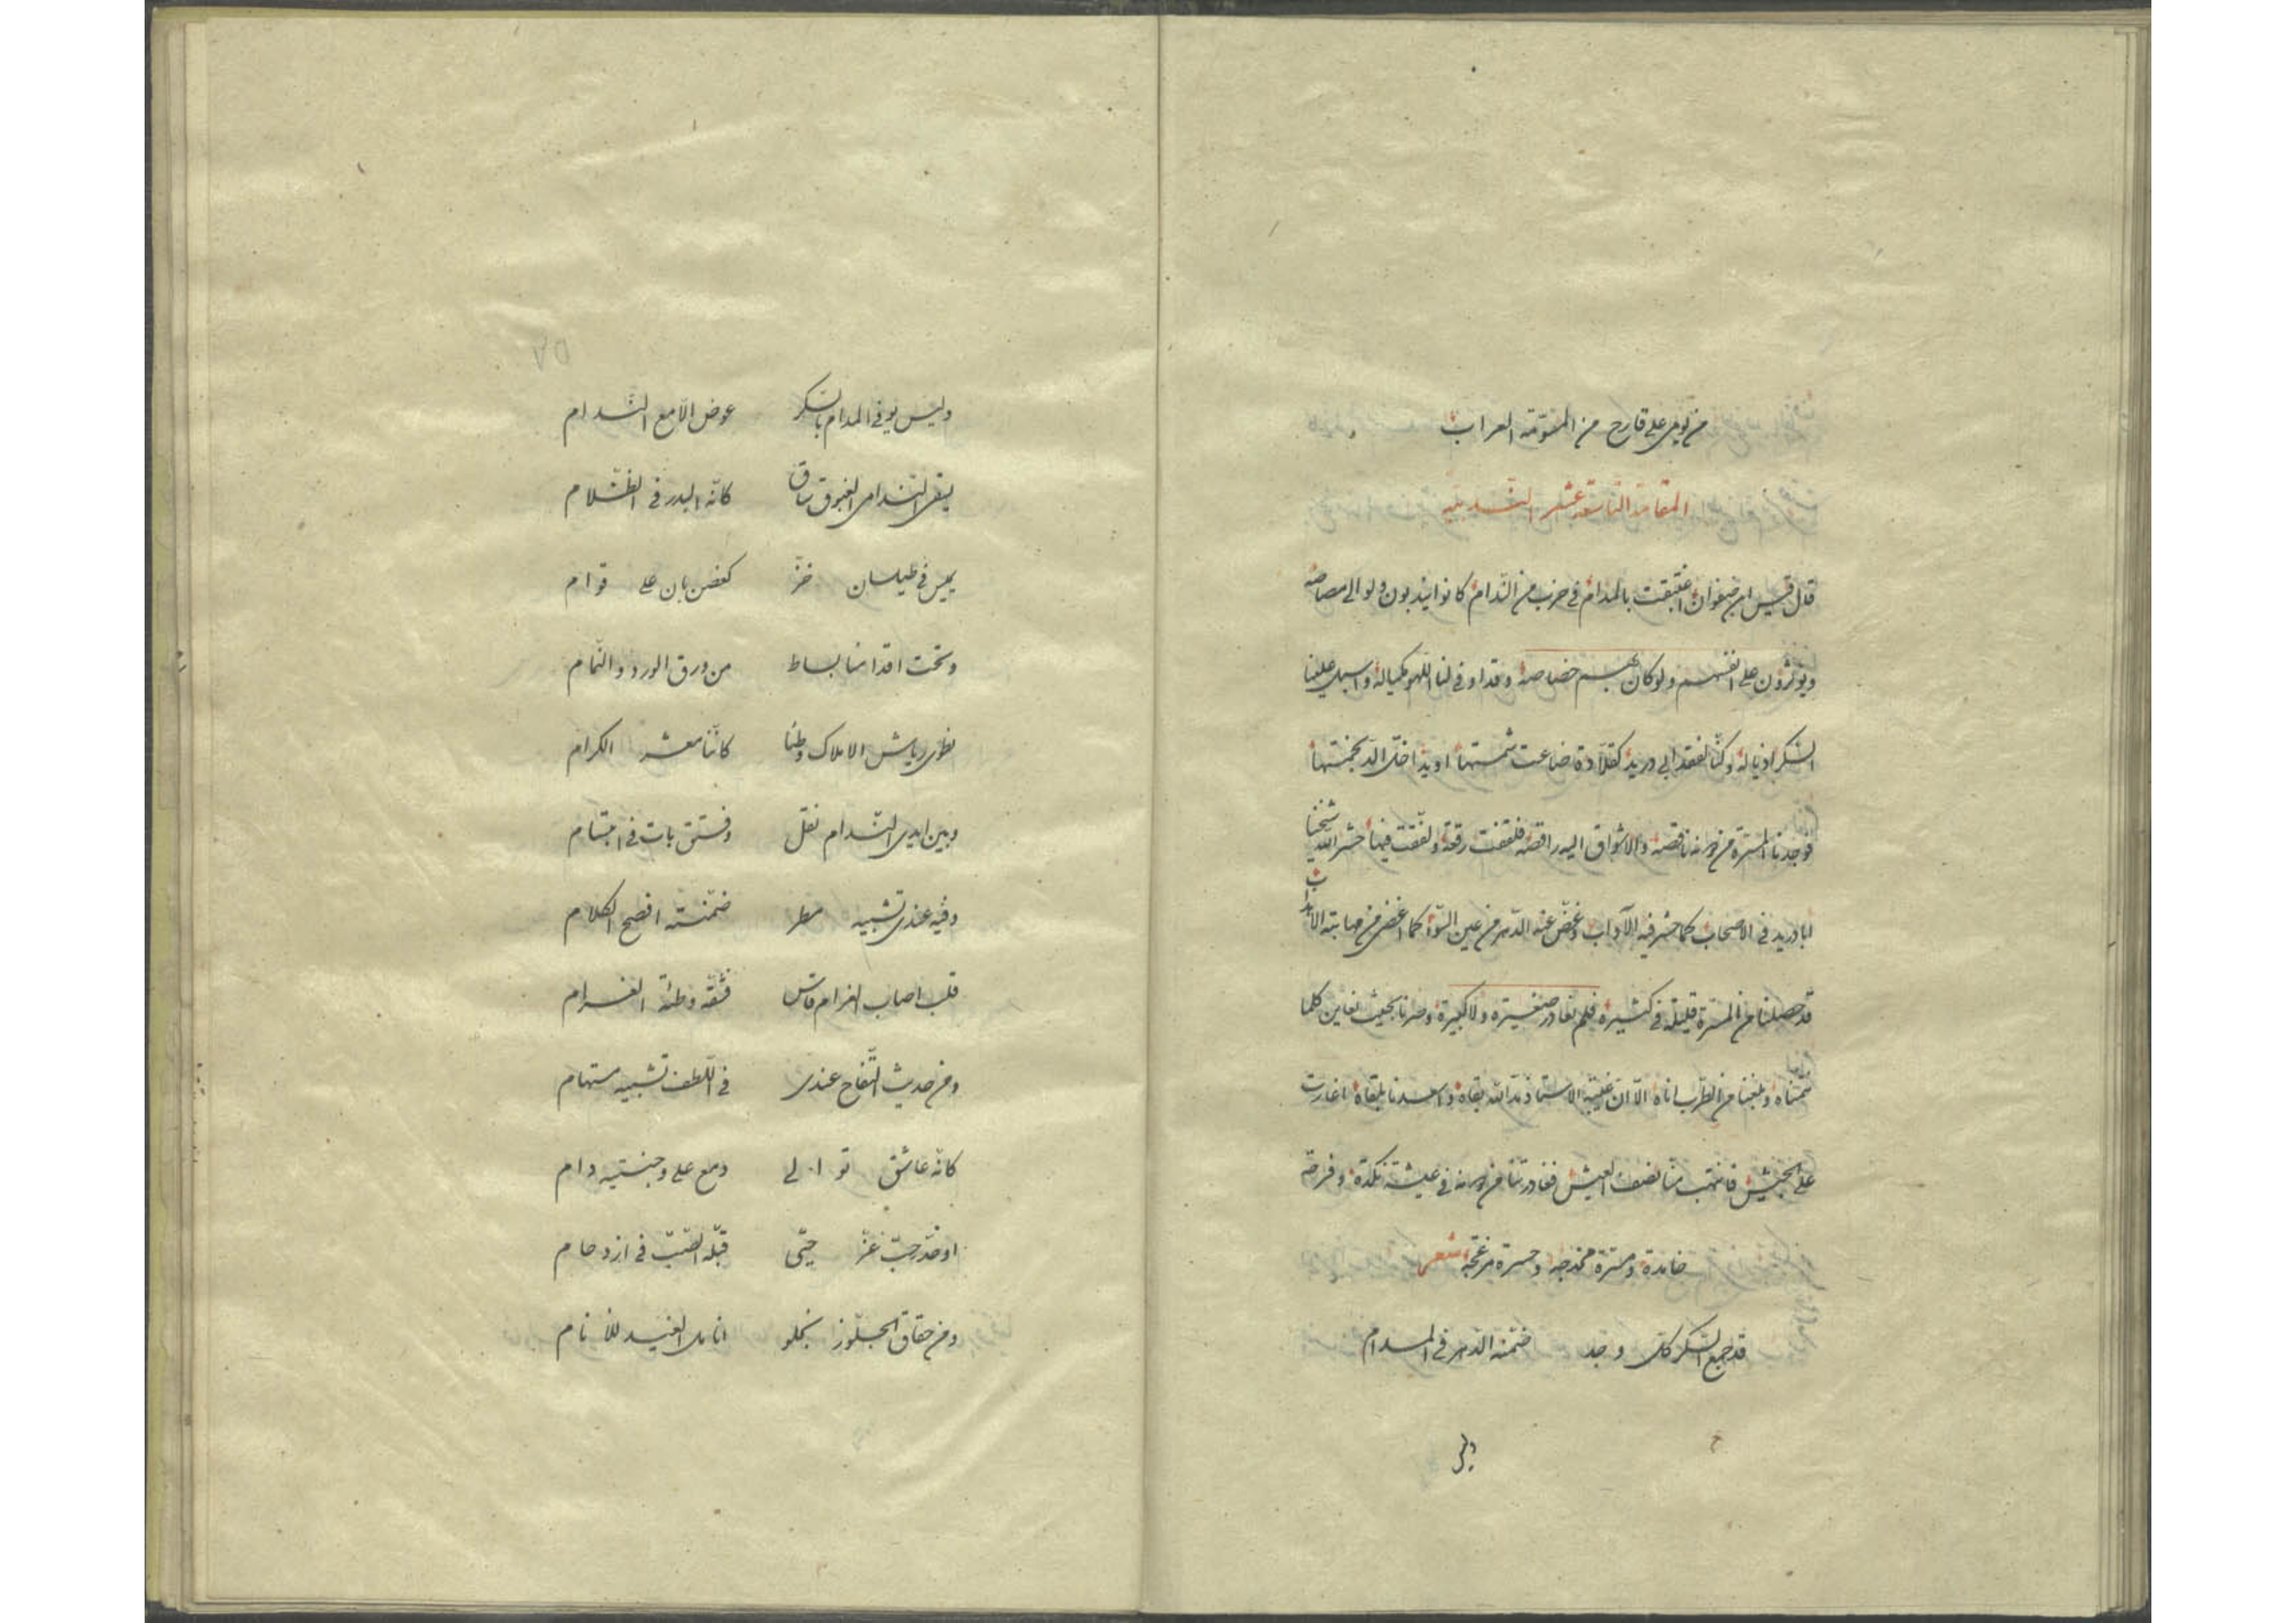 من يومى على قارح من المسومة العراب
المقامة التاسعة عشر
قال قيس ابن صفوان اغتبقت بالمدام فى حزب من الندام كانوا يندبون ولو الى مصاصه
ويؤثرون على انفسهم ولو كان بهم خصاصة وقد اوفى لنا اللهو مكياله واسبل علينا
السكر اذياله وكنا لفقد ابى دريد كقلادة ضاعت
فوجدنا المسرة من دونه ناقصه والاشواق اليه راقصه رقعة ولفقت فيها حشر الله شيخنا
ابا دريد فى الاصحاب كما حشر فيه الآداب وغض عنه الدهر من عين السوء كما اغض من
قد حصلنا من المسرة قليلة فى كثيرة فلم نغادر صغيرة ولا كبيرة وصرنا بحيث نعاين كلما
تمنناه وبلغنا من الطرب اناه الا ان غيبة الاستاذ مد الله بقاه واسعدنا بلقاه اغارت
على الجيش فانتهب منا نصف العيش فغادرتنا من دونه فى عيشة نكدة
خامدة ومسرة مخدجه وحسرة مزعجة شعر
قد جمع السكر كل وجد ضمنه الدهر فى المدام
وليس يوفى المدام بالسكر عوض الا مع الندام
يسقى الندامى الغبوق ساق كانه البدر فى الظلام
يميس فى طيلسان خز كغصن بان على قوام
وتحت اقدامنا بساط من ورق الورد والثمام
نطوى رياش الاملاك وطئا كاننا معشر الكرام
وبين ايدى الندام نقل وفستق بات فى ابتسام
وفيه عندى تشبيه مطر ضمنته افصح الكلام
قلب اصاب الغرام قاس فشقه وطئة الغرام
ومن حديث التفاح عندى فى اللطف تشبيه مستهام
كانه عاشق توالى دمع على وجنتيه دام
او خد حب عز حتى قبله الصب فى ازدحام
ومن حقاق الجلوز نجلو انامل الغيد للانام